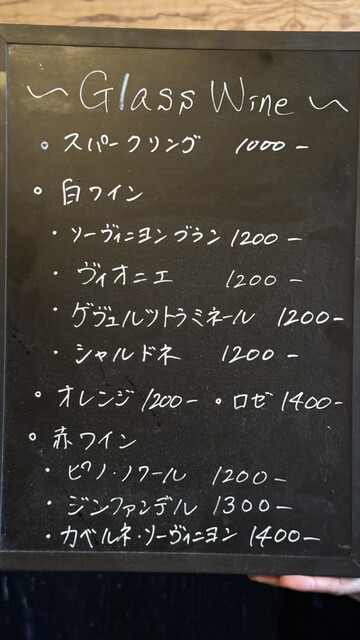 ~ Glass Wine ~
○ スパークリング 1000-
○ 白ワイン
・ソーヴィニヨンブラン 1200-
・ヴィオニエ 1200-
・ゲヴュルツトラミネール 1200-
・シャルドネ 1200-
○ オレンジ 1200- ○ ロゼ 1400-
○ 赤ワイン
・ピノ・ノワール 1200-
・ジンファンデル 1300-
・カベルネ・ソーヴィニヨン 1400-